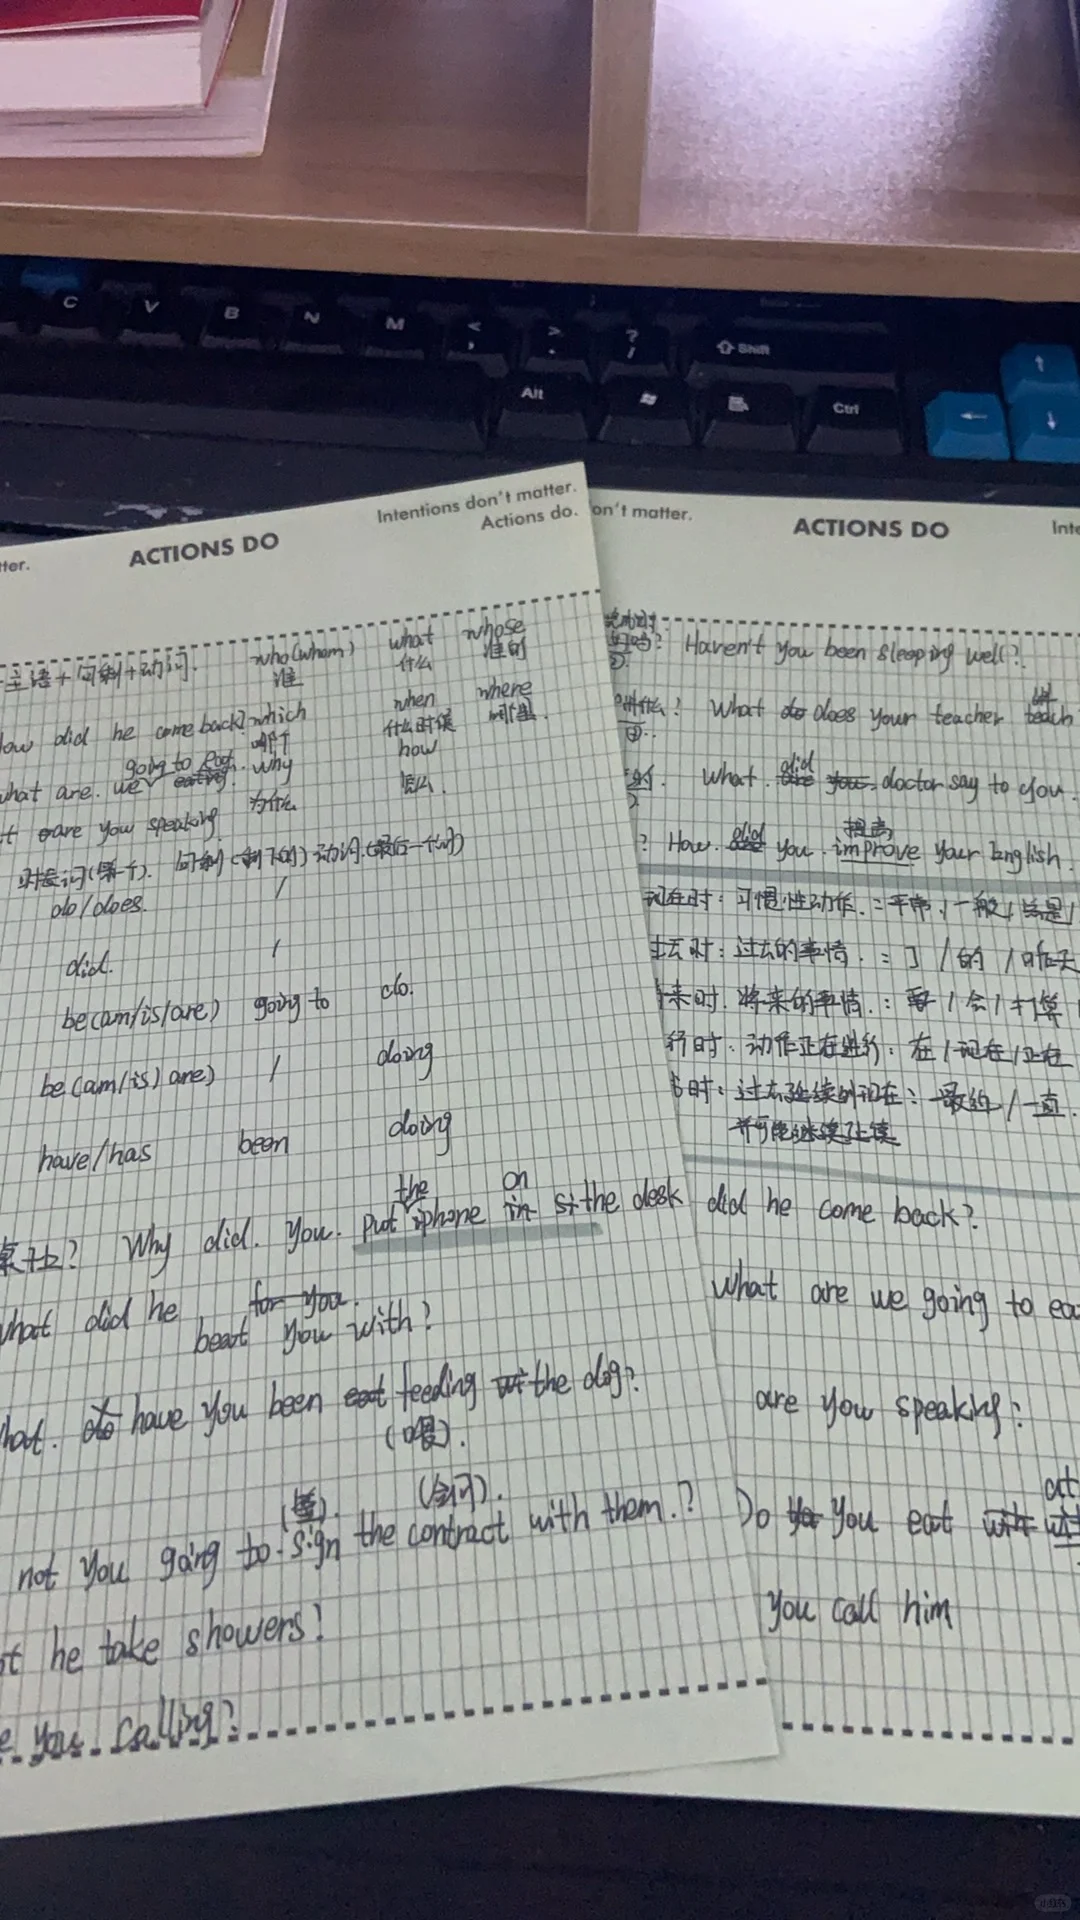 C V B N M < , > . ? / Shift
Alt Ctrl
Intentions don't matter.
ACTIONS DO
Actions do.
主语+间剩+动词.
who(whom) what whose
谁 什么 谁的
did he come back?
which when where
哪个 什么时候 哪里
going to eat.
what are. we eating.
why how
are you speaking
为什么 怎么
时态词(第一个). 间剩(剩下的) 动词.(最后一个词)
do/does. /
did. /
be(am/is/are) going to do.
be(am/is/are) / doing
have/has been doing
the on
桌上? Why did. you. put iphone in the desk
what did he for you.
beat you with?
have you been eat feeding the dog?
(喂).
(签). (合同).
not you going to sign the contract with them.?
he take showers?
you calling?
on't matter.
ACTIONS DO
Haven't you been sleeping well?
什么? What do does your teacher teach
did
What. are you. doctor say to you.
did 提高
? How. you. improve your English.
现在时: 习惯性动作. = 平常 / 一般 / 总是 /
去时: 过去的事情. = 了 / 的 / 昨天
来时. 将来的事情. : 要 / 会 / 打算
行时. 动作正在进行: 在 / 现在 / 正在
时: 过去延续到现在: 最近 / 一直.
并可能继续延续
did he come back?
what are we going to ea
are you speaking?
at
Do you eat with
you call him